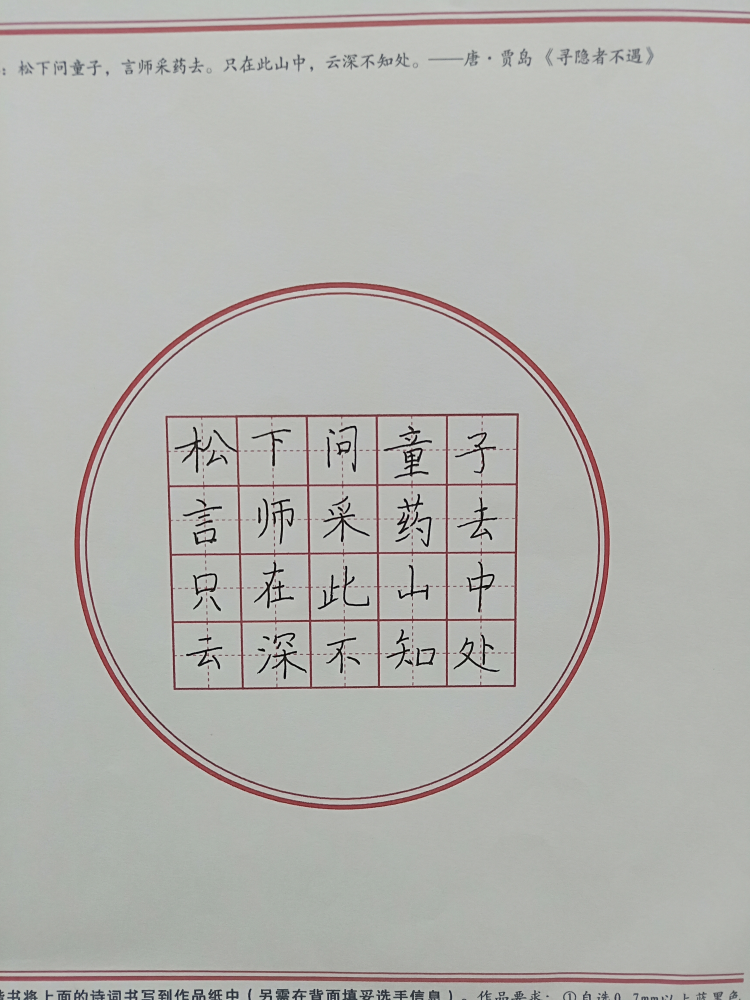 ：松下问童子，言师采药去。只在此山中，云深不知处。——唐·贾岛《寻隐者不遇》
松下问童子
言师采药去
只在此山中
云深不知处
书将上面的诗词书写到作品纸中（另需在背面填妥选手信息）。作品要求：①自选0.7mm以上蓝黑色